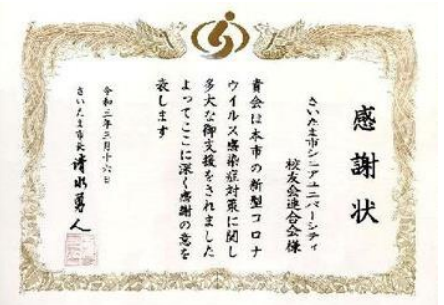 感謝状
さいたま市シニアユニバーシティ
校友会連合会様
貴会は本市の新型コロナ
ウイルス感染症対策に関し
多大な御支援をされました
よってここに深く感謝の意を
表します
令和三年三月十六日
さいたま市長 清水勇人